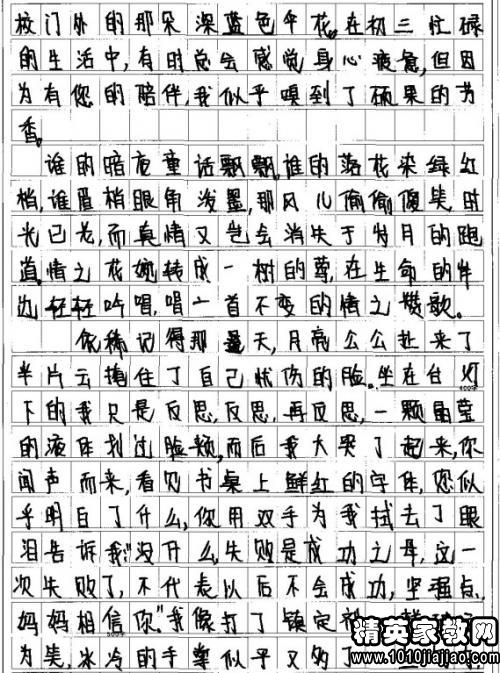 校门外的那朵深蓝色伞花。在初三忙碌
的生活中,有时总会感觉身心疲惫,但因
为有您的陪伴,我似乎嗅到了硕果的芳
香。
谁的暗夜童话飘飘,谁的落花染绿红
梢,谁眉梢眼角泼墨,那风儿偷偷傻笑,时
光已老,而真情又岂会消失于岁月的跑
道,情之花婉转成一树的萼,在生命的伴
边轻轻吟唱,唱一首不变的情之赞歌。
依稀记得那是天,月亮公公赴来了
半片云掩住了自己忧伤的脸。坐在台灯
400字
下的我只是反思,反思,再反思,一颗晶莹
的液体划过脸颊,而后我大哭了起来,你
闻声而来,看见书桌上鲜红的字体,您似
乎明白了什么,你用双手为我拭去了眼
泪告诉我:"没什么,失败是成功之母,这一
次失败了,不代表以后不会成功,坚强点,
妈妈相信你"我像打了镇定
500字
为笑,冰冷的手掌似乎又
精英家教网
www.1010jiajiao.com